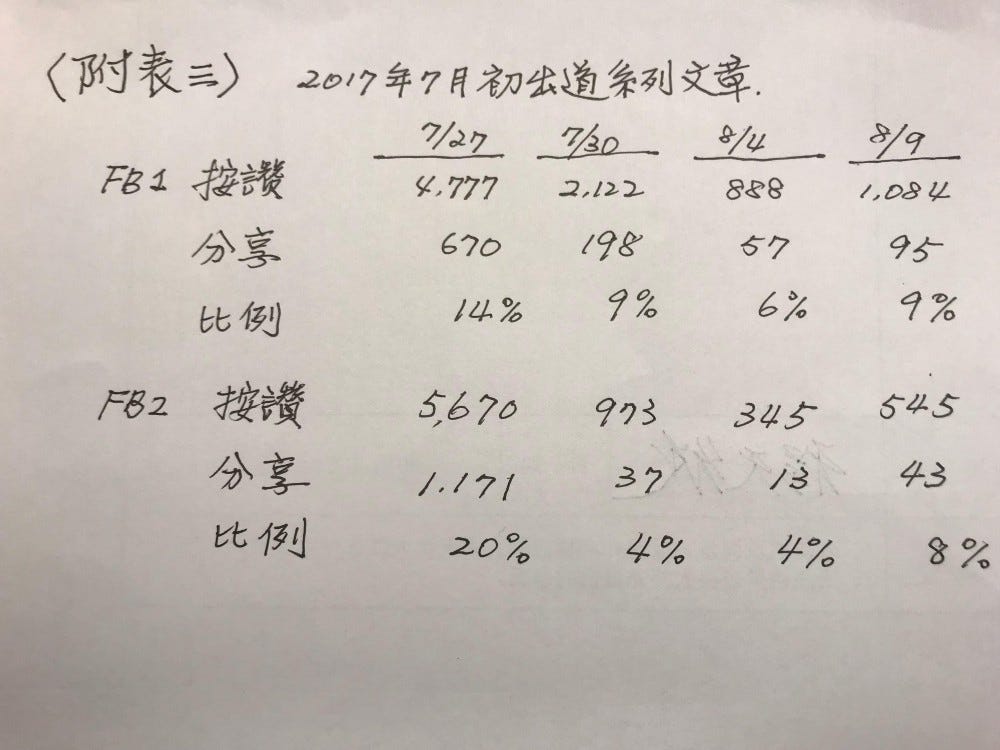 〈附表三〉 2017年7月初出道系列文章.
7/27 7/30 8/4 8/9
FB1 按讚 4,777 2,122 888 1,084
分享 670 198 57 95
比例 14% 9% 6% 9%
FB2 按讚 5,670 973 345 545
分享 1.171 37 13 43
比例 20% 4% 4% 8%